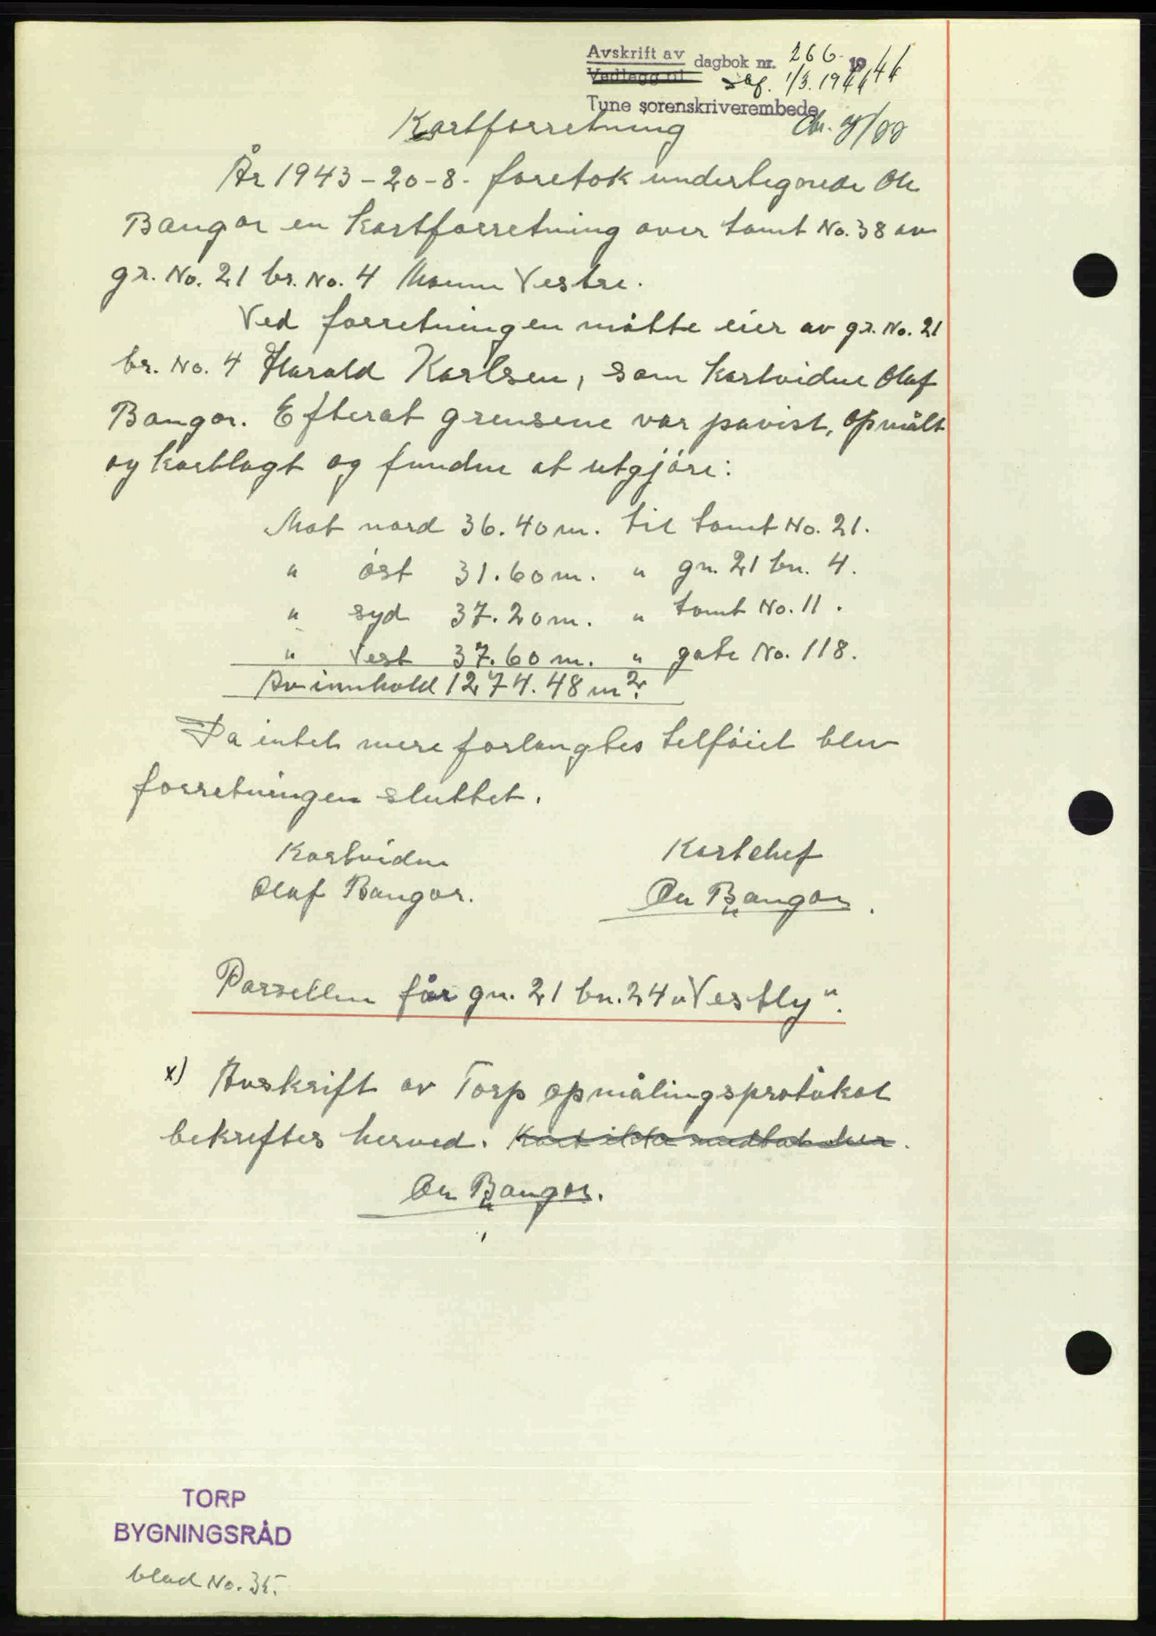 Avskrift av dagbok nr. 266 1946
Vedlegg til dagf. 1/3. 1946
Tune sorenskriverembede
Kartforretning
År 1943-20-8. foretok undertegnede Ole
Bangor en kartforretning over tomt No. 38 av
gr. No. 21 br. No. 4 Moum Vestre.
Ved forretningen møtte eier av gr. No. 21
br. No. 4 Harald Karlsen, som kartvidne Olaf
Bangor. Efterat grensene var påvist, opmålt
og kartlagt og fundne at utgjøre:
Mot nord 36.40 m. til tomt No. 21.
" øst 31.60 m. " gn. 21 bn. 4.
" syd 37.20 m. " tomt No. 11.
" Vest 37.60 m. " gate No. 118.
Av innhold 1274.48 m².
Da intet mere forlangtes tilføiet blev
forretningen sluttet.
Kartvidne Kartchef
Olaf Bangor. Ole Bangor.
Parsellen får gn. 21 bn. 24 "Vestly".
x) Avskrift av Torp opmålingsprotokol
bekreftes herved. Kart ikke
Ole Bangor.
TORP
BYGNINGSRÅD
blad No. 35.